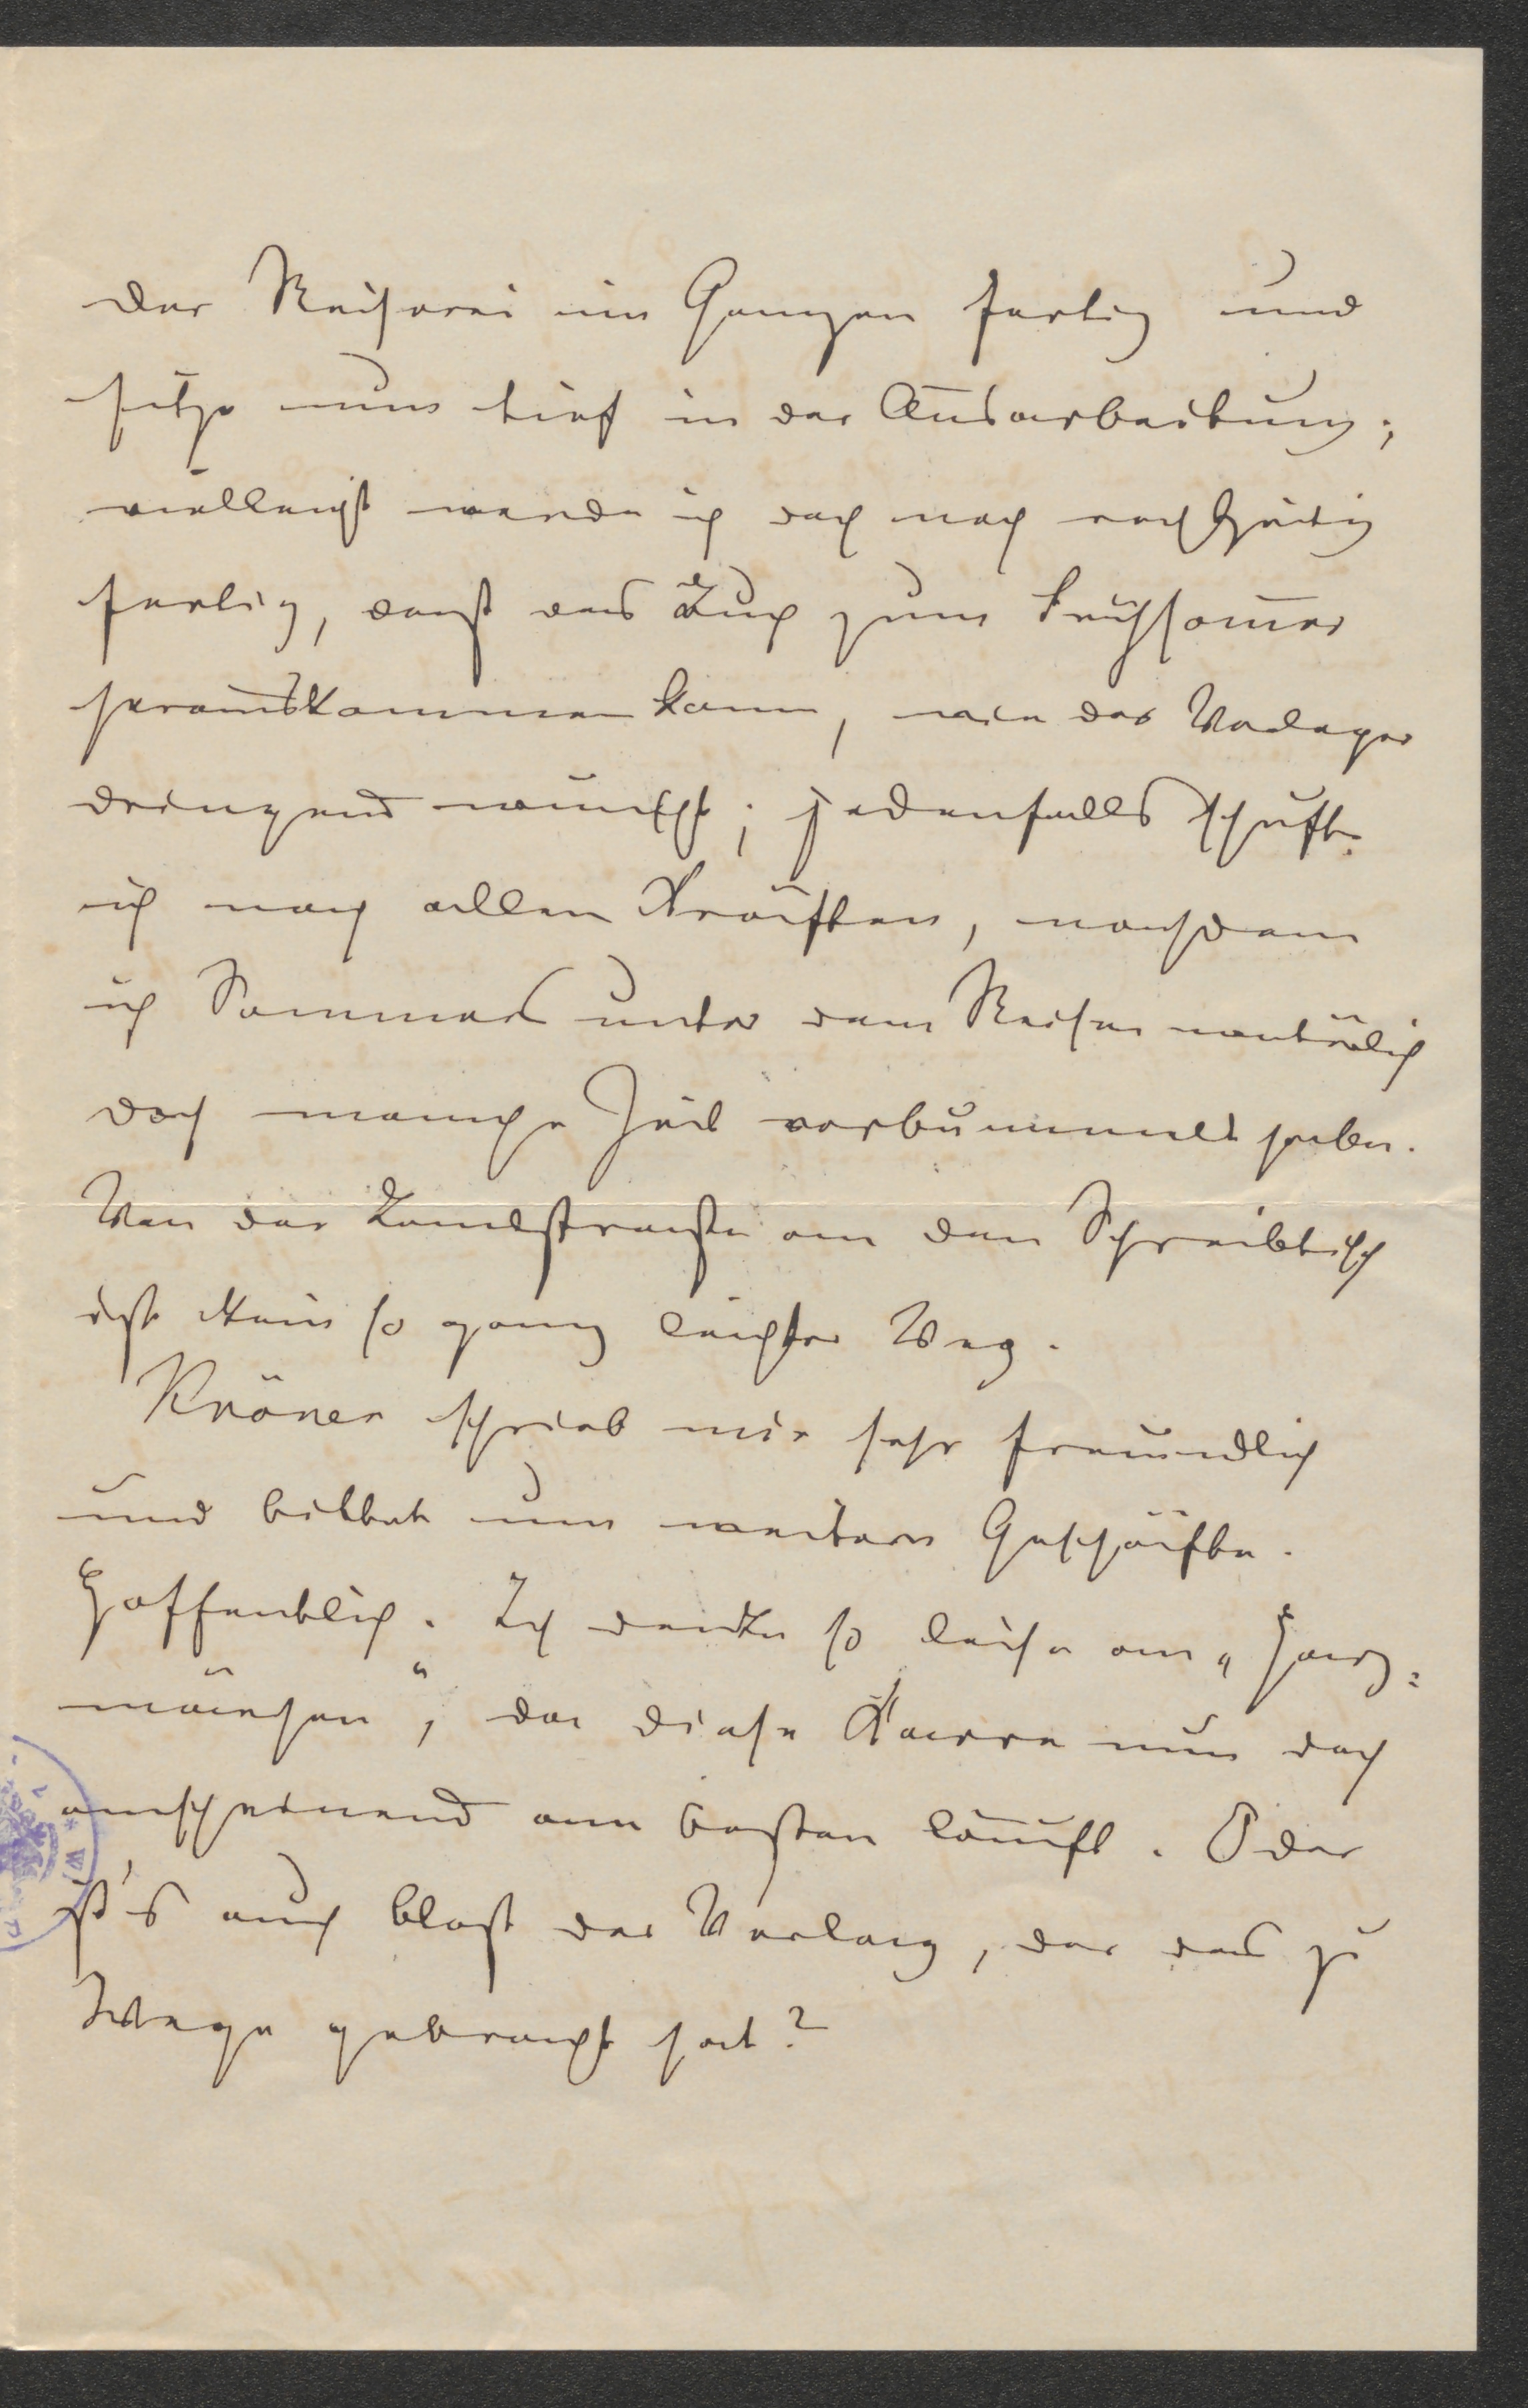 der Reiserei im Ganzen fertig und
sitze nun tief in der Ausarbeitung;
vielleicht werde ich doch noch rechtzeitig
fertig, daß das Buch zum Frühsom̅er
herauskommen kann, wie der Verleger
dringend wünscht; jedenfalls schufte
ich nach allen Kräften, nachdem
ich Sommers unter dem Reisen natürlich
doch manche Zeit verbummelt habe.
Von der Landstraße an den Schreibtisch
ist kein so ganz leichter Weg.
Kröner schrieb mir sehr freundlich
und bittet um weitere Geschäfte.
Hoffentlich. Ich denke so leise an „Harz=
märchen", da diese Karre nun doch
anscheinend am besten läuft. Oder
ist's auch bloß der Verlag, der das zu
Wege gebracht hat?